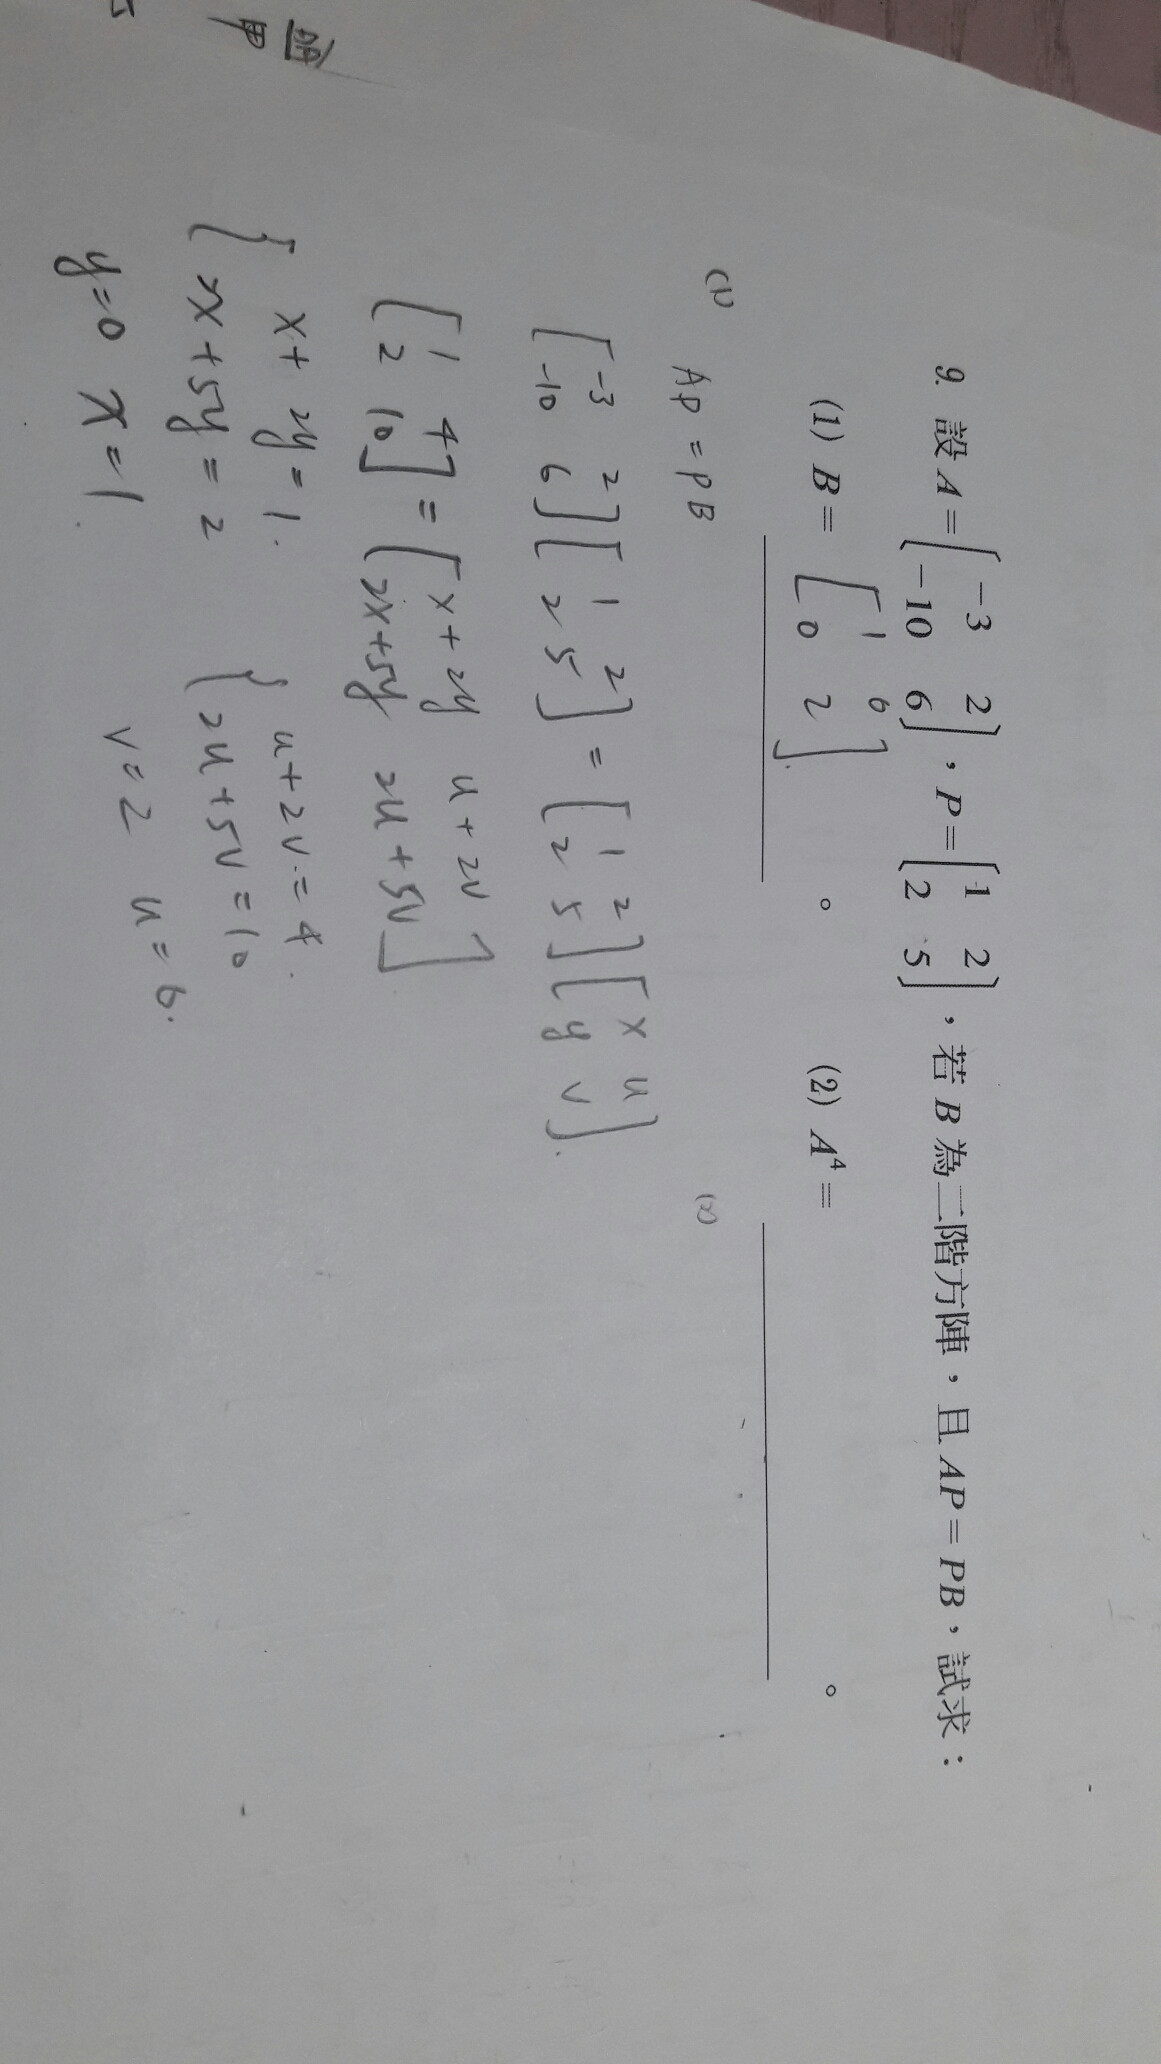 9. 設 A = [ -3 2 ; -10 6 ] , P = [ 1 2 ; 2 5 ] , 若 B 為二階方陣 , 且 AP = PB , 試求 :
(1) B = [ 1 6 ; 0 2 ] 。 (2) A⁴ = 。
(1) (2)
AP = PB
[ -3 2 ; -10 6 ] [ 1 2 ; 2 5 ] = [ 1 2 ; 2 5 ] [ x u ; y v ] .
[ 1 4 ; 2 10 ] = [ x + 2y u + 2v ; 2x + 5y 2u + 5v ]
{ x + 2y = 1 . { u + 2v = 4 .
x + 5y = 2 2u + 5v = 10
y = 0 x = 1 v = 2 u = 6 .